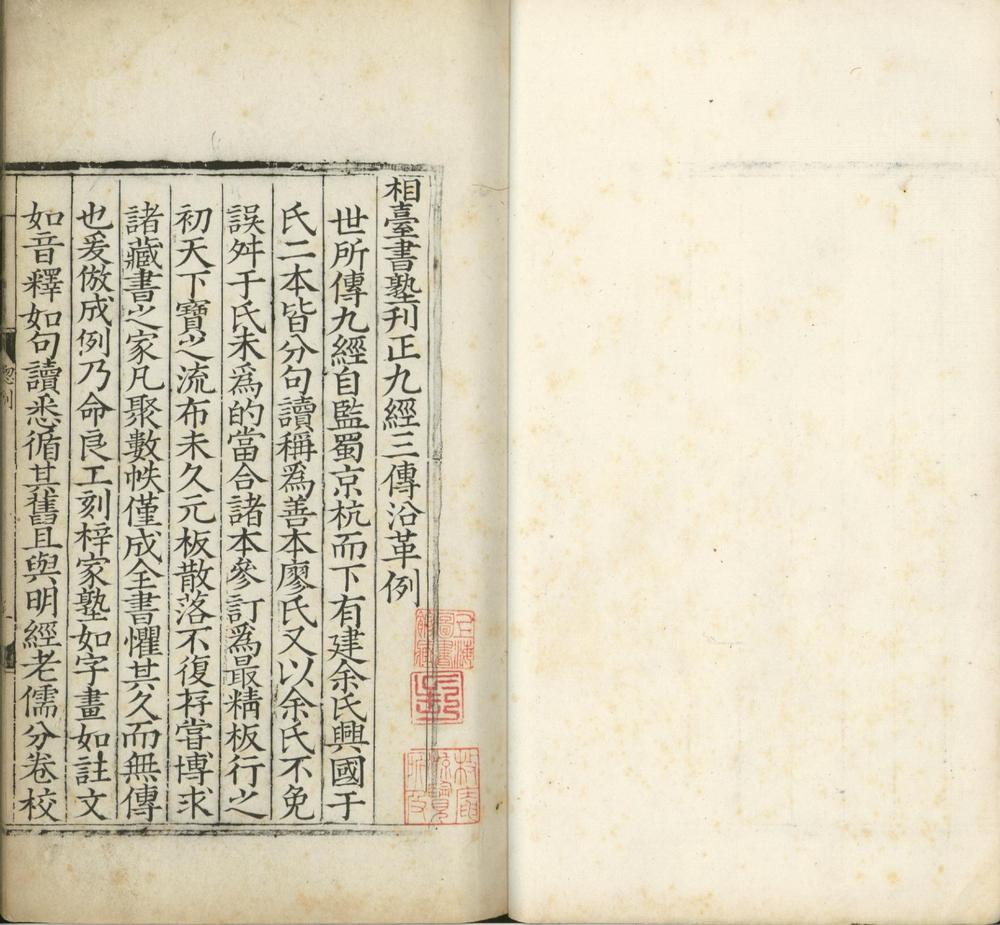 相臺書塾刊正九經三傳沿革例
世所傳九經自監蜀京杭而下有建余氏興國于
氏二本皆分句讀稱爲善本廖氏又以余氏不免
誤舛于氏未爲的當合諸本參訂爲最精板行之
初天下寶之流布未久元板散落不復存嘗博求
諸藏書之家凡聚數帙僅成全書懼其久而無傳
也爰倣成例乃命良工刻梓家塾如字畫如註文
如音釋如句讀悉循其舊且與明經老儒分卷校
上海圖書館藏